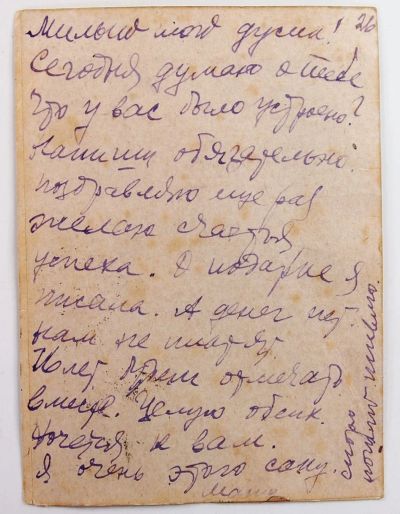 Милый мой дусик! 26
Сегодня думаю о тебе
Что у вас было устроено?
Напиши обязательно.
поздравляю еще раз
желаю счастья
успеха. О подарке я
писала. А денег нет
нам не платят.
будем отмечать
вместе. Целую обсих.
Хочется к вам.
Я очень этого
скоро